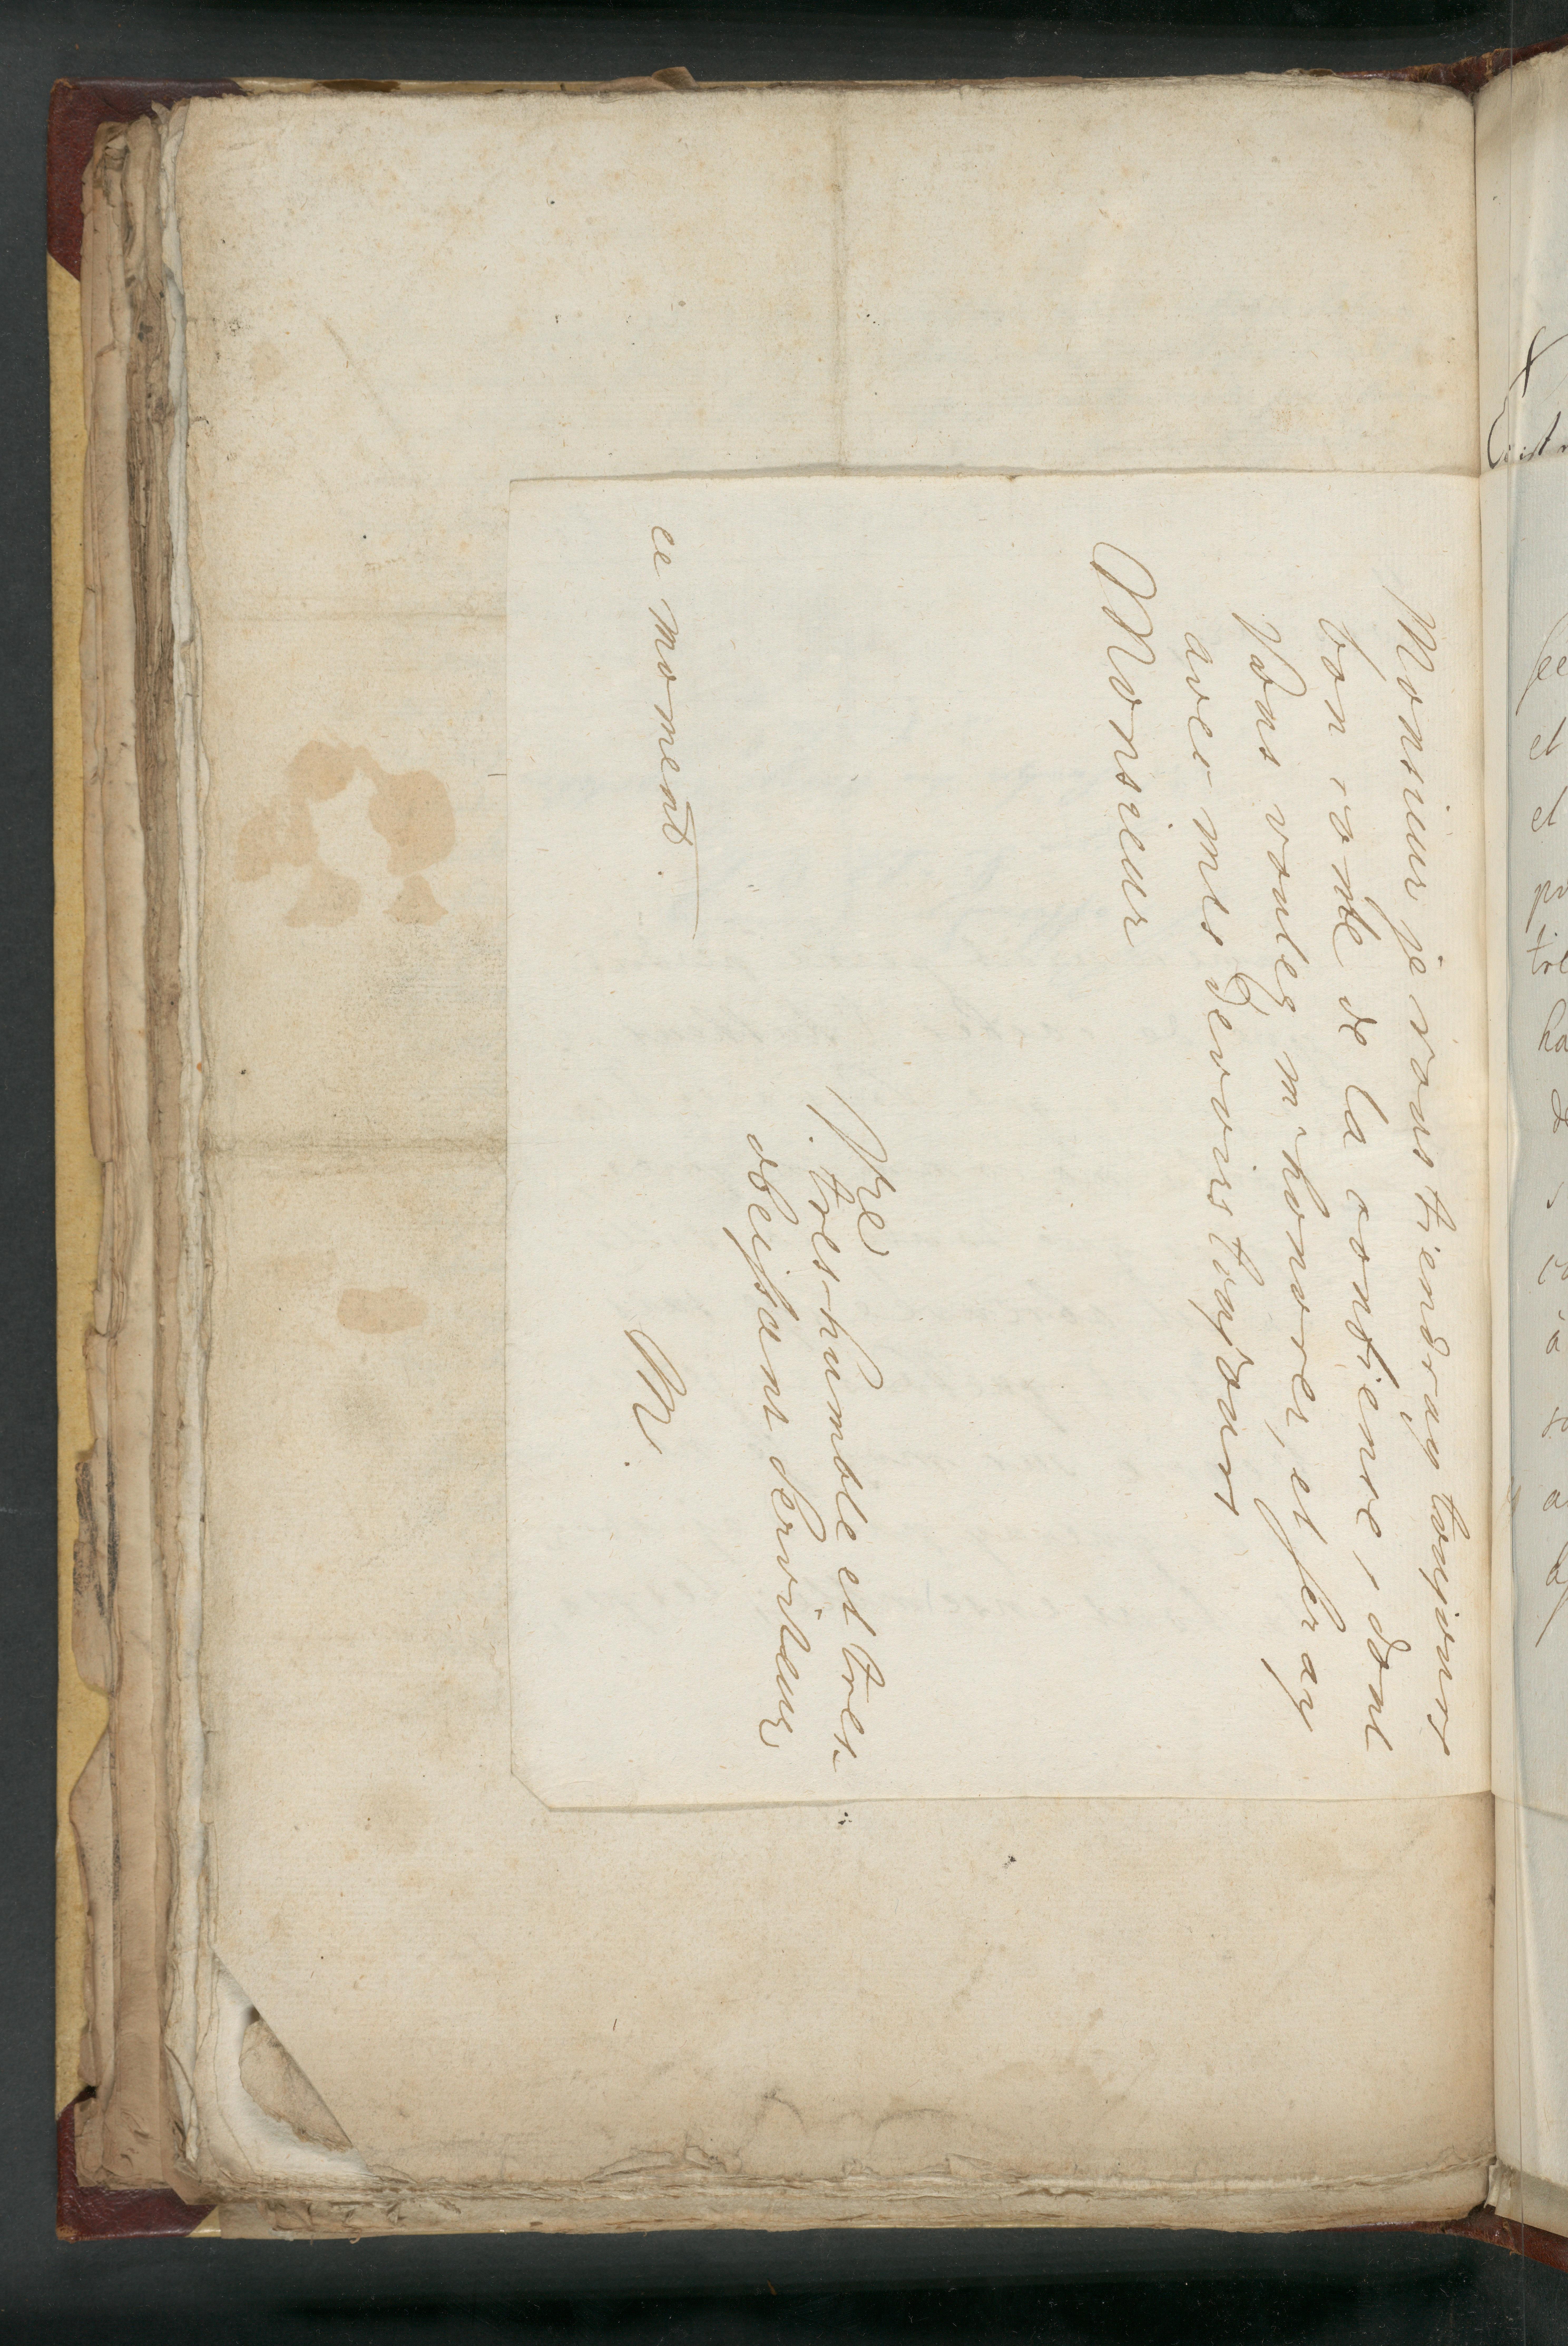 Monsieur je vous tiendray toujours
bon comte de la confience, dont
Vous voulez m'honorer, et feray
avec mes Devoirs toujours
Monsieur
Vre
tres-humble et tres-
obeissant Serviteur
M.
ce moment.